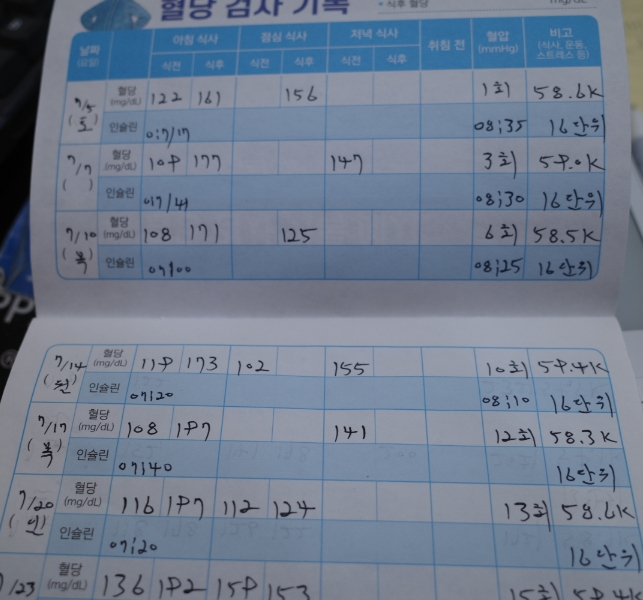 혈당 검사 기록
• 식후 혈당
mg/dL
날짜 (요일) 아침 식사 점심 식사 저녁 식사 취침 전 혈압 (mmHg) 비고 (식사, 운동, 스트레스 등)
식전 식후 식전 식후 식전 식후
7/5 (토) 혈당 (mg/dL) 122 161 156 1회 58.6K
인슐린 07/17 08;35 16단위
7/7 ( ) 혈당 (mg/dL) 109 177 147 3회 59.0K
인슐린 07/41 08;30 16단위
7/10 (목) 혈당 (mg/dL) 108 171 125 6회 58.5K
인슐린 07;00 08;25 16단위
7/14 (월) 혈당 (mg/dL) 119 173 102 155 10회 59.4K
인슐린 07;20 08;10 16단위
7/17 (목) 혈당 (mg/dL) 108 197 141 12회 58.3K
인슐린 07;40 16단위
7/20 (일) 혈당 (mg/dL) 116 197 112 124 13회 58.6K
인슐린 07;20 16단위
7/23 혈당 (mg/dL) 136 192 159 153 15회 59.4K